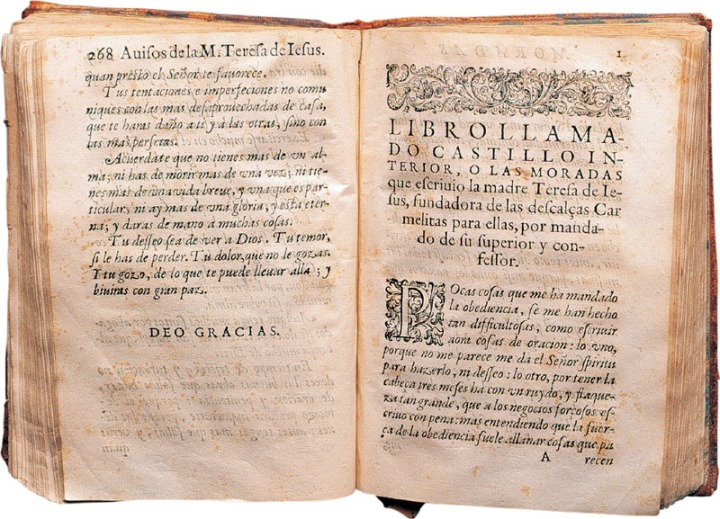 268 Auisos de la M. Teresa de Iesus.
quan presto el Señor te fauorece.
Tus tentaciones e imperfeciones no comu
niques con las mas desaprouechadas de casa,
que te haras daño a ti y a las otras, sino con
las mas perfetas.
Acuerdate que no tienes mas de vn al-
ma; ni has de morir mas de vna vez; ni tie-
nes mas de vna vida breue, y vna que es par-
ticular, ni ay mas de vna gloria, y esta eter-
na; y daras de mano a muchas cosas.
Tu desseo sea de ver a Dios. Tu temor,
si le has de perder. Tu dolor, que no le gozas.
Y tu gozo, de lo que te puede lleuar alla; y
biuiras con gran paz.
DEO GRACIAS.
1
LIBRO LLAMA-
DO CASTILLO IN-
TERIOR, O LAS MORADAS
que escriuio la madre Teresa de Ie-
sus, fundadora de las descalças Car
melitas para ellas, por manda-
do de su superior y con-
fessor.
POcas cosas que me ha mandado
la obediencia, se me han hecho
tan dificultosas, como escriuir
aora cosas de oracion: lo vno,
porque no me parece me da el Señor spiritu
para hazerlo, ni desseo: lo otro, por tener la
cabeça tres meses ha con vn ruydo, y flaque-
za tan grande, que a los negocios forçosos es-
criuo con pena: mas entendiendo que la fuer-
ça de la obediencia suele allanar cosas que pa
A recen